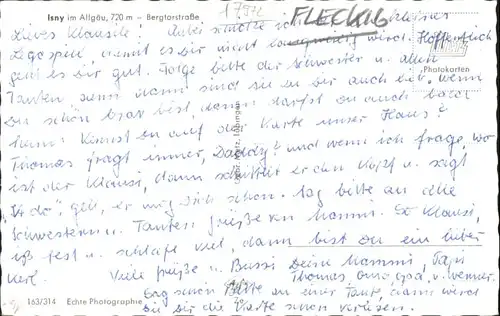 Isny im Allgäu, 720 m – Bergtorstraße
17972
FLECKIG
Liebes Klausile! Anbei schicke ich kleines
Legospiel, damit es Dir nicht langweilig wird. Hoffentlich
geht es Dir gut. Folge bitte der Schwester u. allen
Tanten, denn dann sind sie zu Dir auch lieb. Wenn
Du schön brav bist, dann darfst Du auch bald
heim. Kennst Du auf der Karte unser Haus?
Thomas fragt immer, Daddy? und wenn ich frage, wo
ist der Klausi, dann schüttelt er den Kopf u. sagt
"It do", gell, er mag Dich schon. Sag bitte an alle
Schwestern u. Tanten Grüße von Mammi. So Klausi,
iß fest u. schlafe viel, dann bist Du ein lieber
Kerl. Viele Grüße u. Bussi Deine Mammi, Papi
Thomas, Omaopa, u. Werner.
Sag schön Bitte zu einer Tante, dann wird
sie Dir die Karte schon vorlesen.
Photokarten
163/314 Echte Photographie